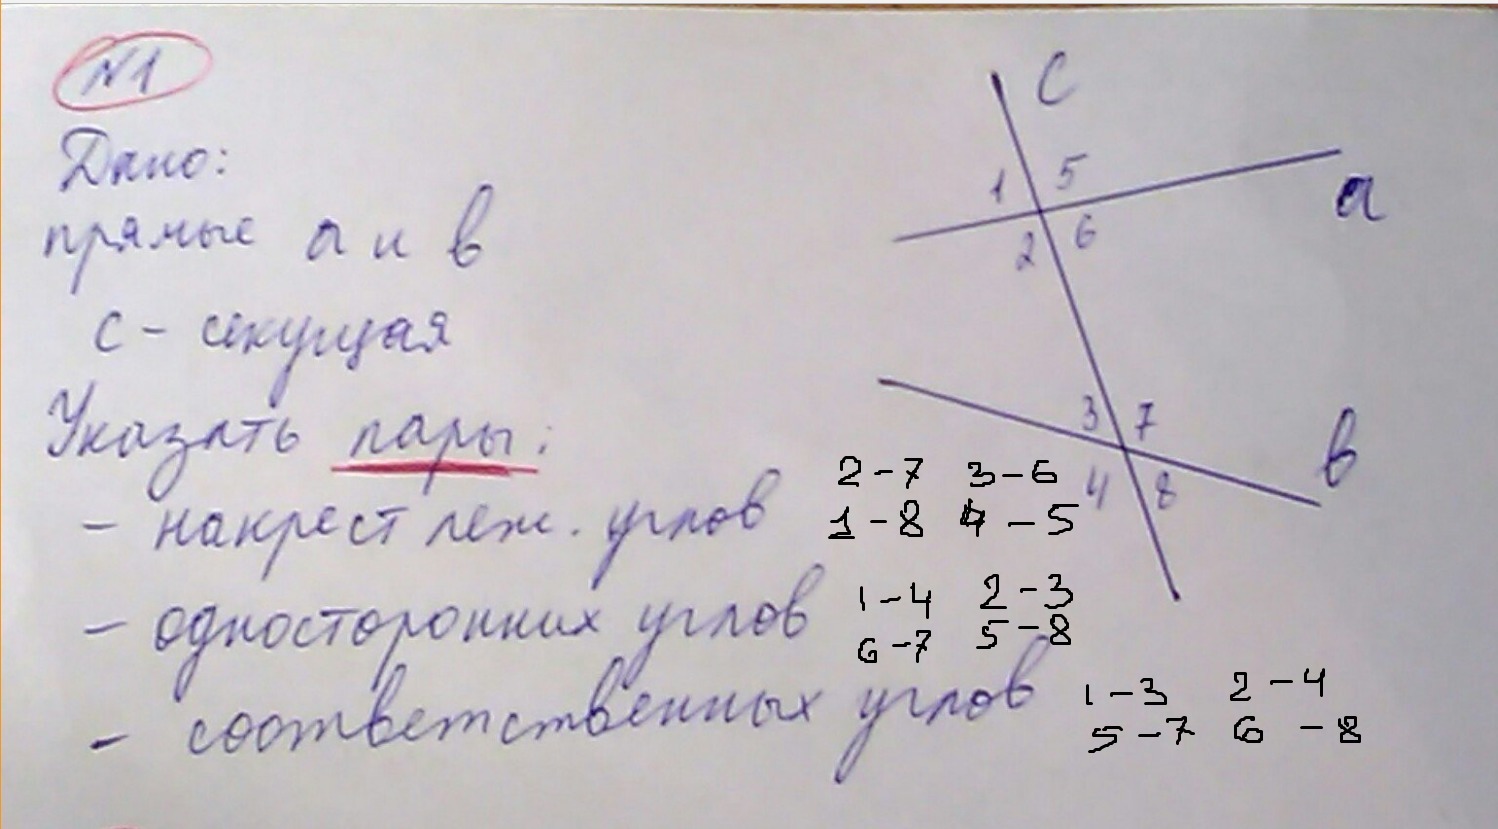 N1
Дано:
прямые а и в
с - секущая
Указать пары:
- накрест леж. углов
2 - 7 3 - 6
1 - 8 4 - 5
- односторонних углов
1 - 4 2 - 3
6 - 7 5 - 8
- соответственных углов
1 - 3 2 - 4
5 - 7 6 - 8
С
1 5
а
2 6
3 7
в
4 8